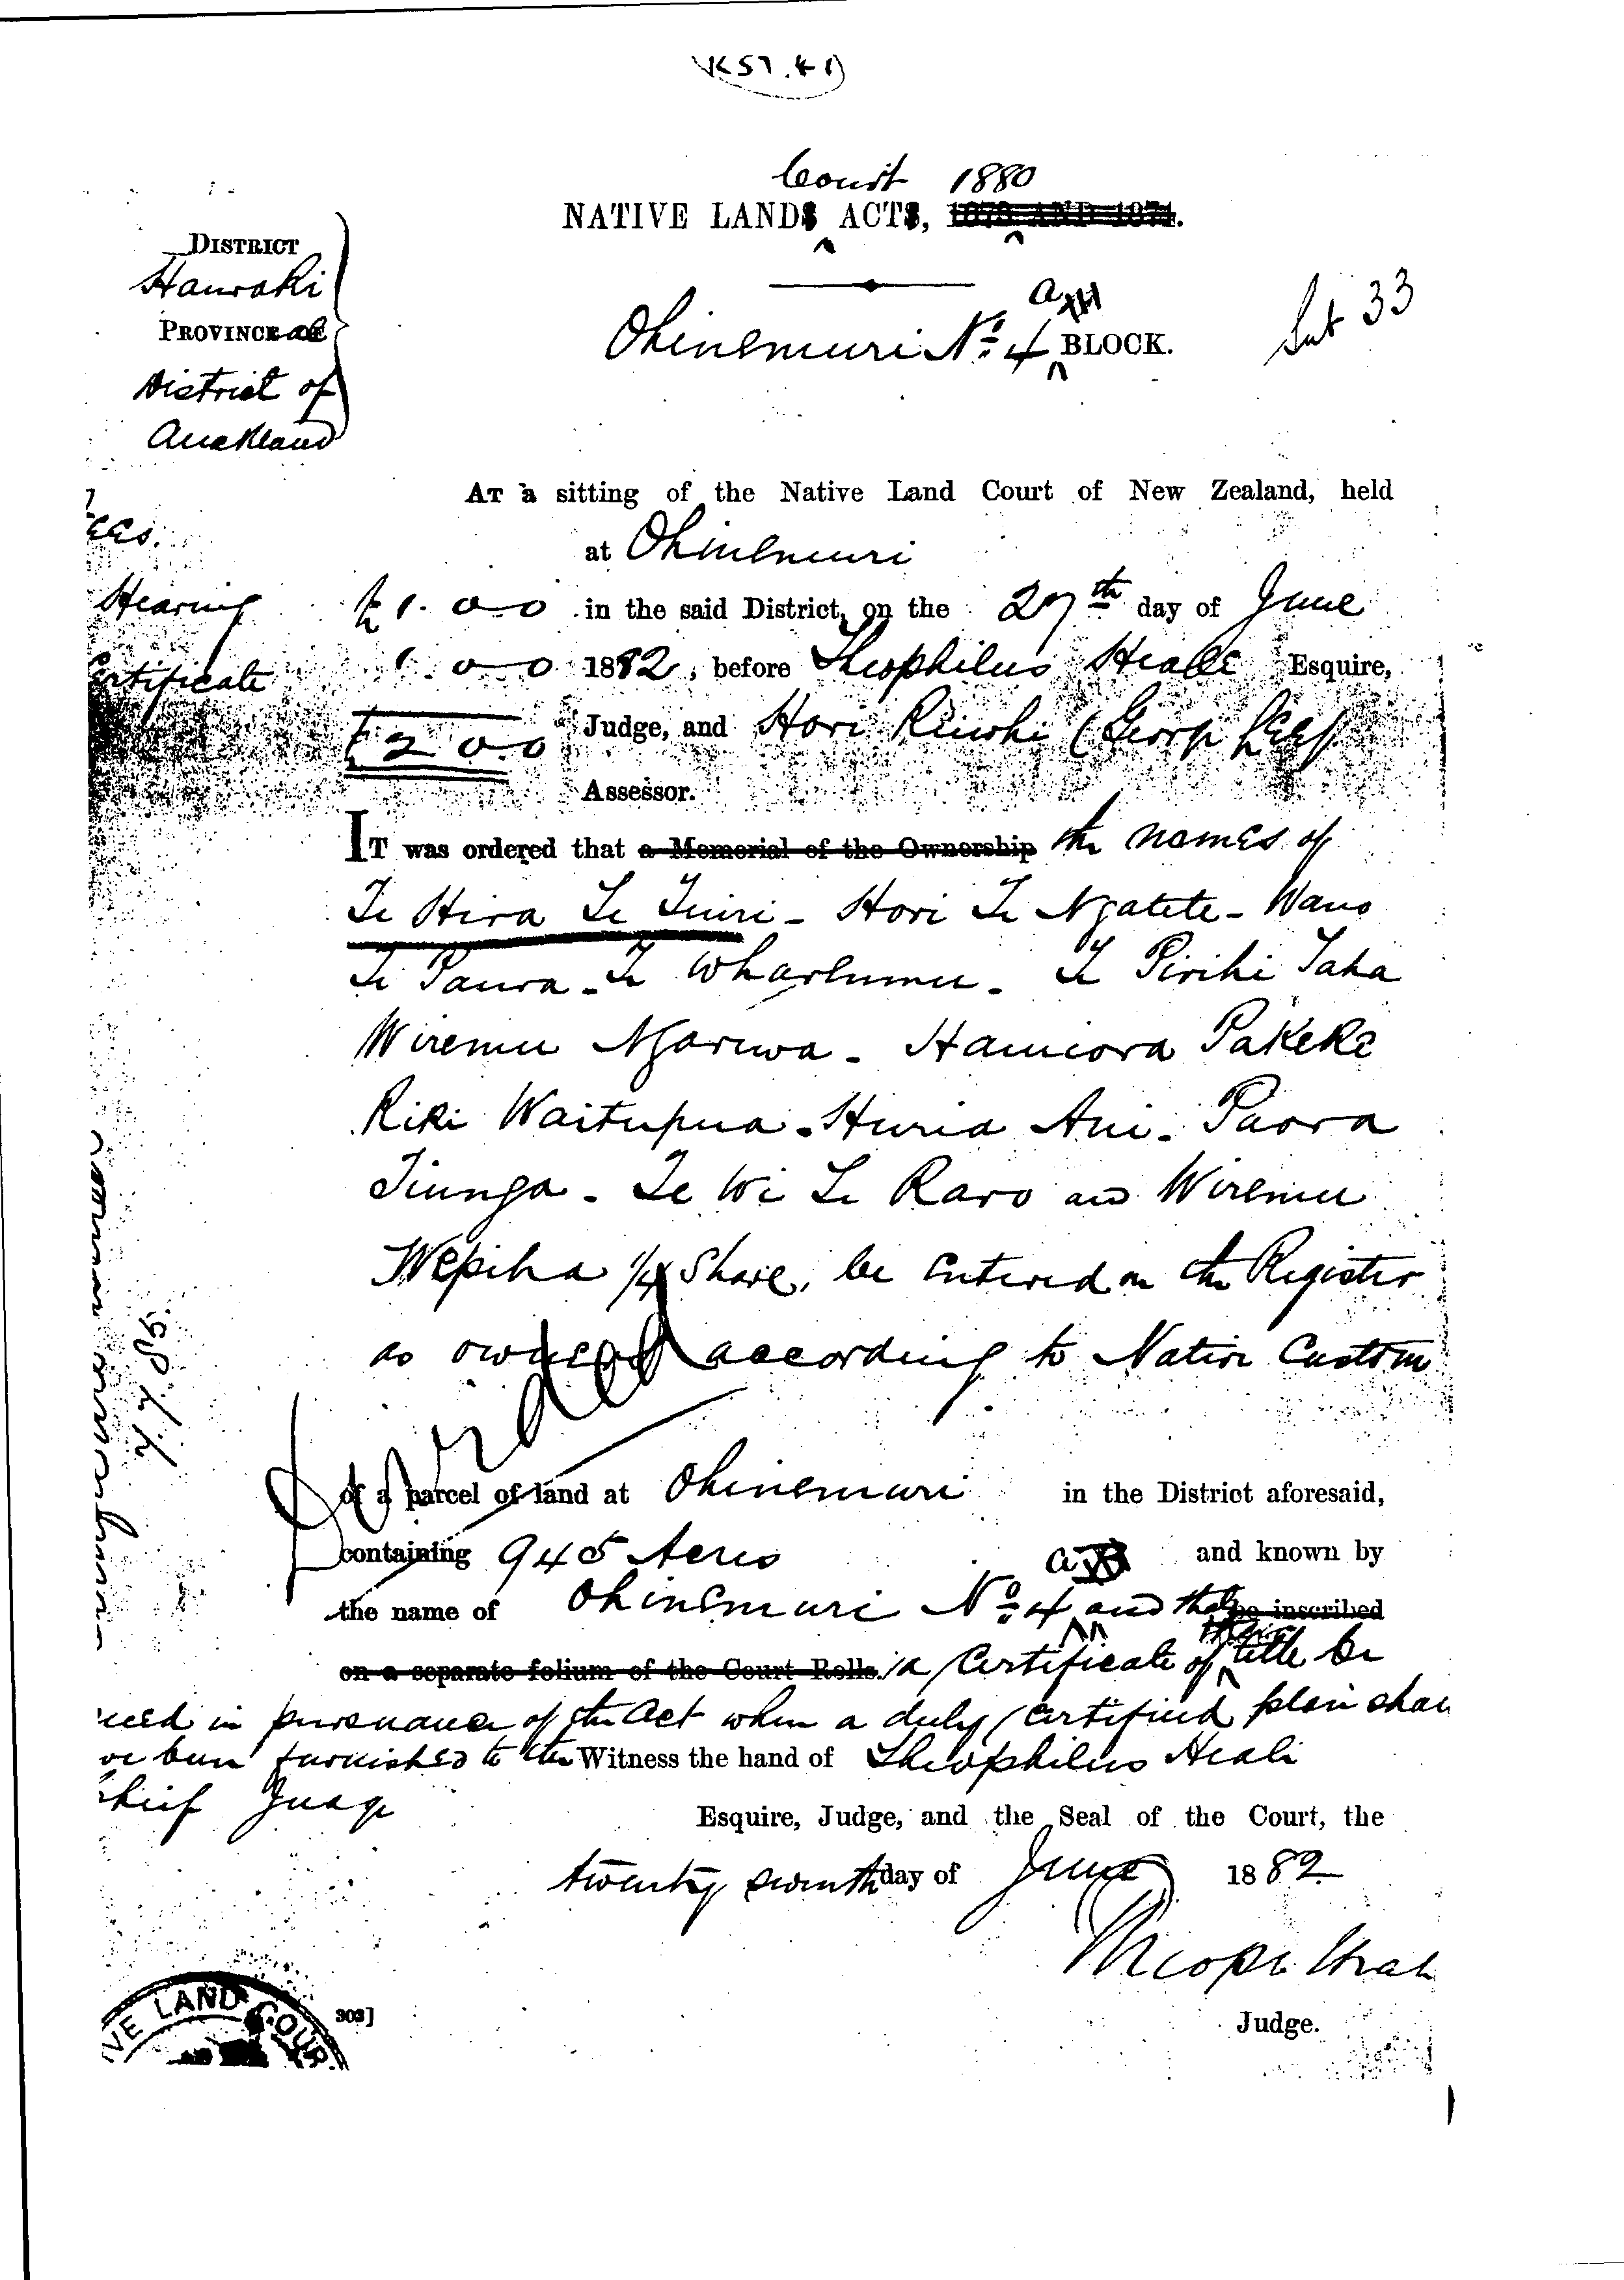 K57.41
Court 1880
NATIVE LANDS ACTS, 1873 AND 1874.
DISTRICT
Hauraki
PROVINCE OF
District of
Auckland
Ohinemuri No. 4 a BLOCK.
Sub 33
AT a sitting of the Native Land Court of New Zealand, held
at Ohinemuri
Fees.
Hearing £1.0.0 in the said District, on the 27th day of June
Certificate 1.0.0 1882, before Theophilus Heale Esquire,
£2.0.0 Judge, and Hori
Assessor.
IT was ordered that a Memorial of the Ownership the names of
Te Hira Te Tuiri - Hori Te Ngatete - Wano
Te Paura - Te Wharenui - Te Pirihi Taha
Wiremu Ngaruwa - Hamiora Pakeke
Riki Waitupua - Huria Ani - Paora
Tiunga - Te Wi Te Raro and Wiremu
Wepiha 1/4 Share, be entered on the Register
as owners according to Native Custom
of a parcel of land at Ohinemuri in the District aforesaid,
containing 945 Acres and known by
the name of Ohinemuri No. 4 a and that be inscribed
on a separate folium of the Court Rolls. a Certificate of their title be
ued in pursuance of the Act when a duly certified plan shal
ve been furnished to the Witness the hand of Theophilus Heale
Chief Judge
Esquire, Judge, and the Seal of the Court, the
twenty seventh day of June 1882
Theoph. Heale
Judge.
303]
VE LAND COUR